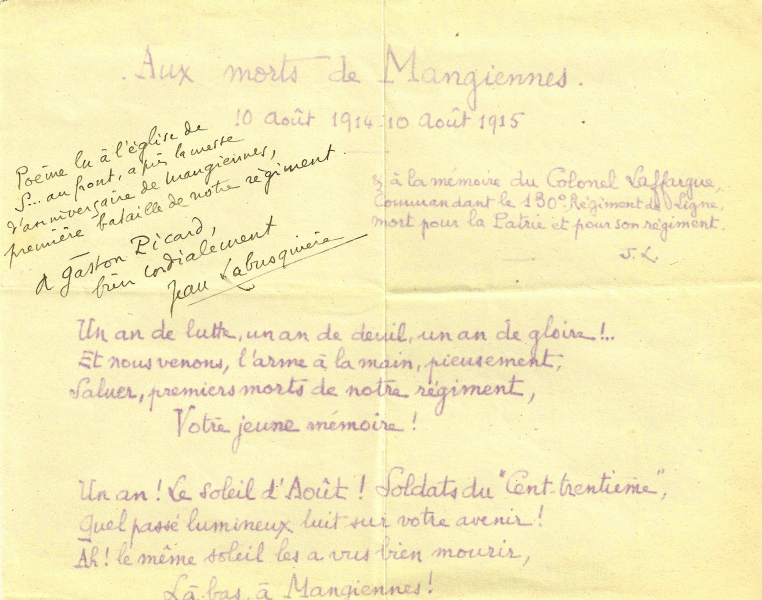 Aux morts de Mangiennes.
10 Août 1914-10 Août 1915
Poème lu à l'église de
S... au front, après la messe
d'anniversaire de mangiennes,
première bataille de notre régiment
A Gaston Picard,
bien cordialement
Jean Labusquière
& à la mémoire du Colonel Laffargue,
Commandant le 130e Régiment de Ligne,
mort pour la Patrie et pour son régiment.
J. L.
Un an de lutte, un an de deuil, un an de gloire !..
Et nous venons, l'arme à la main, pieusement,
Saluer, premiers morts de notre régiment,
Votre jeune mémoire !
Un an ! Le soleil d'Août ! Soldats du "Cent-trentième",
Quel passé lumineux luit sur votre avenir !
Ah ! le même soleil les a vus bien mourir,
Là-bas, à Mangiennes !